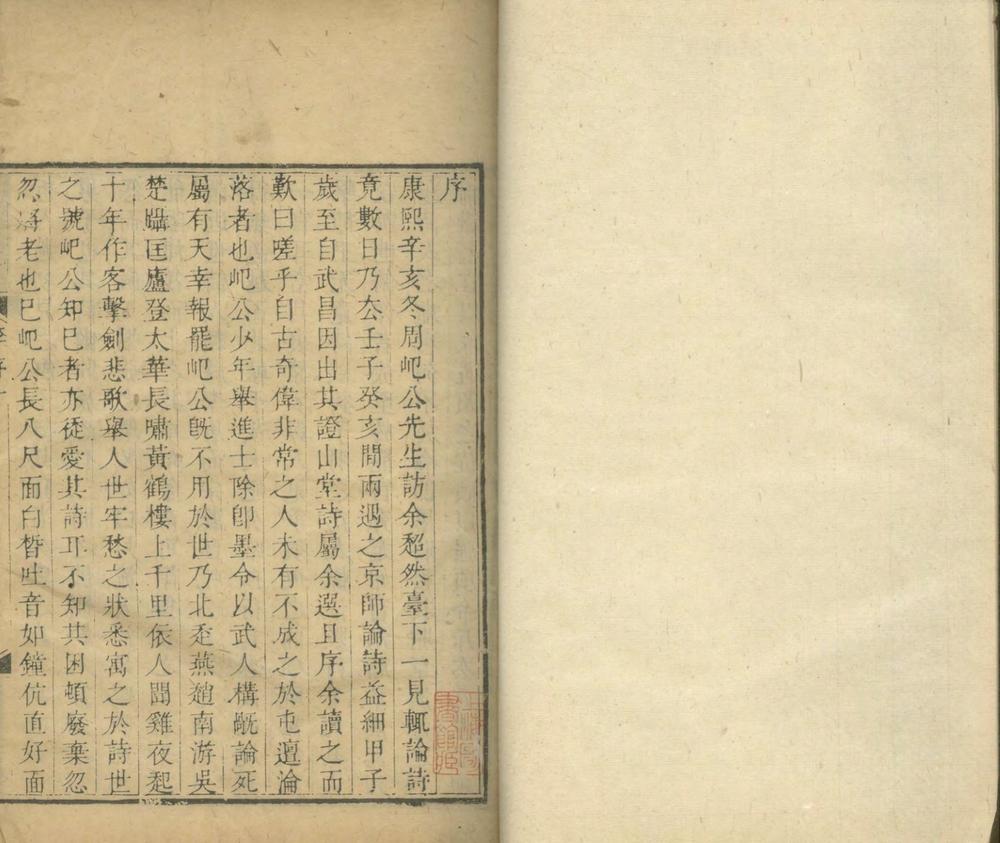 序
康熙辛亥冬周屺公先生訪余超然臺下一見輒論詩
竟數日乃厺壬子癸亥間兩遇之京師論詩益細甲子
歲至自武昌因出其證山堂詩屬余選且序余讀之而
歎曰嗟乎自古奇偉非常之人未有不成之於屯邅淪
落者也屺公少年舉進士除卽墨令以武人構衅論死
屬有天幸報罷屺公既不用於世乃北走燕趙南游吳
楚躡匡廬登太華長嘯黃鶴樓上千里依人聞雞夜起
十年作客擊劍悲歌舉人世牢愁之狀悉寓之於詩世
之號屺公知巳者亦徒愛其詩耳不知其困頓廢棄忽
忽將老也巳屺公長八尺面白皙吐音如鐘伉直好面